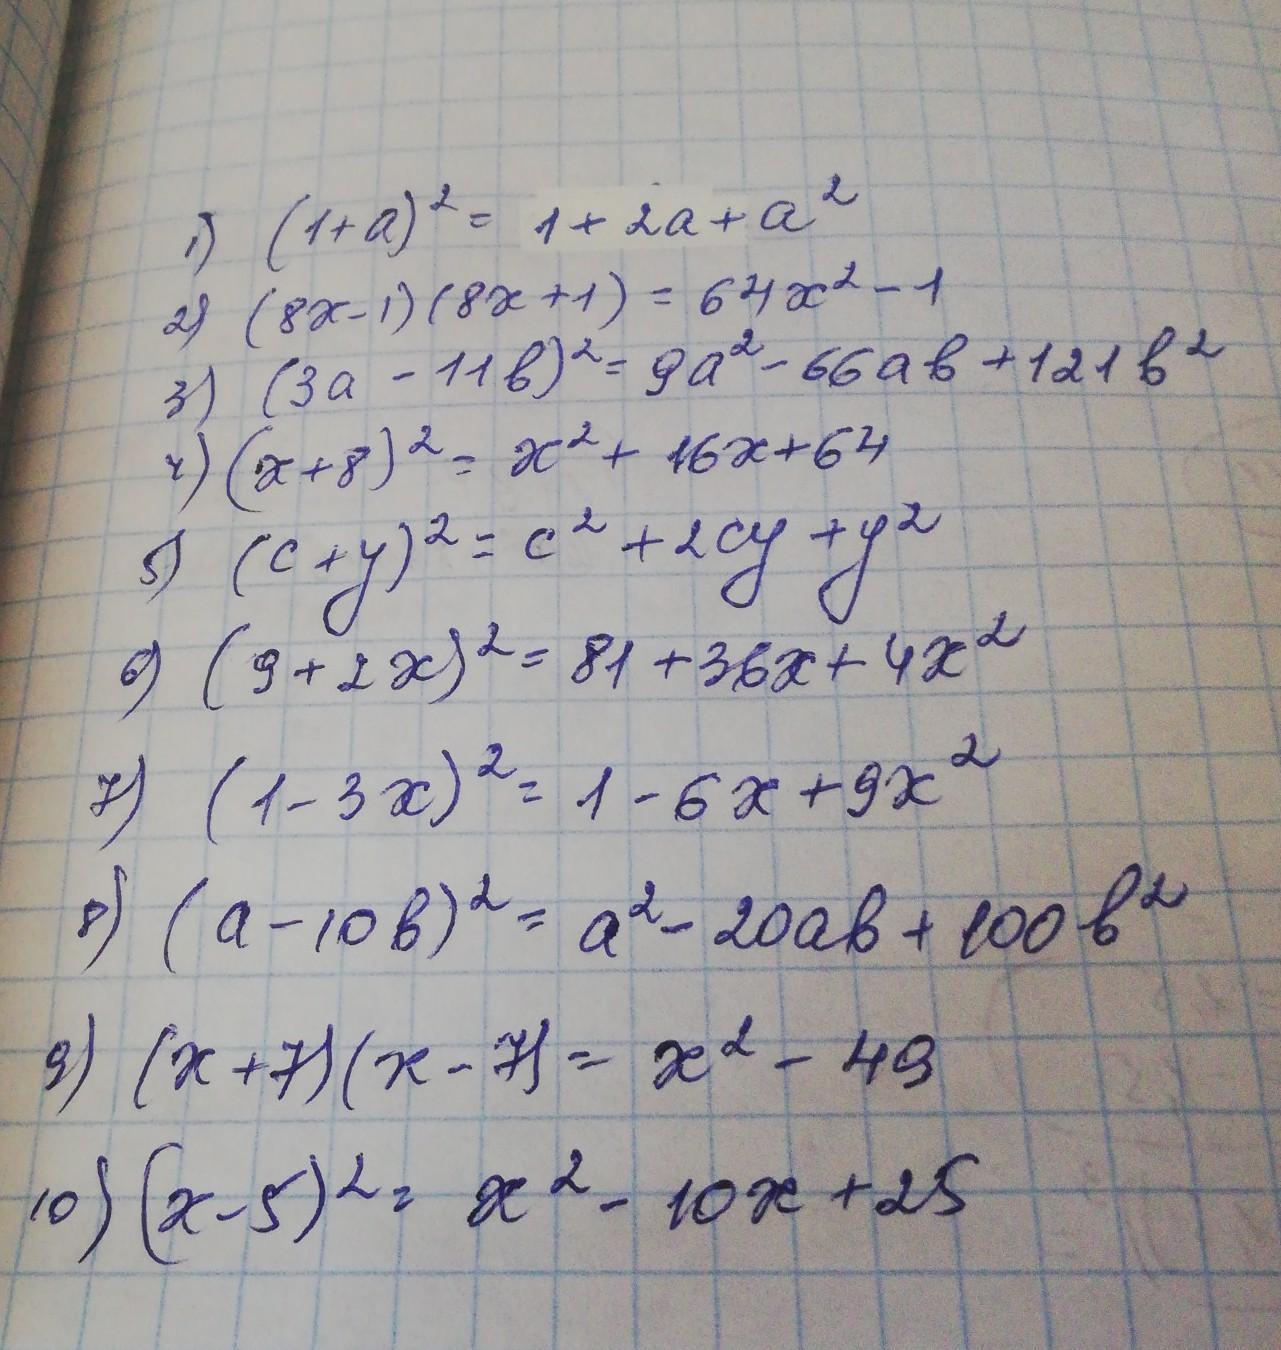 1) (1+a)² = 1+2a+a²
2) (8x-1)(8x+1) = 64x²-1
3) (3a-11b)² = 9a²-66ab+121b²
4) (x+8)² = x²+16x+64
5) (c+y)² = c²+2cy+y²
6) (9+2x)² = 81+36x+4x²
7) (1-3x)² = 1-6x+9x²
8) (a-10b)² = a²-20ab+100b²
9) (x+7)(x-7) = x²-49
10) (x-5)² = x²-10x+25